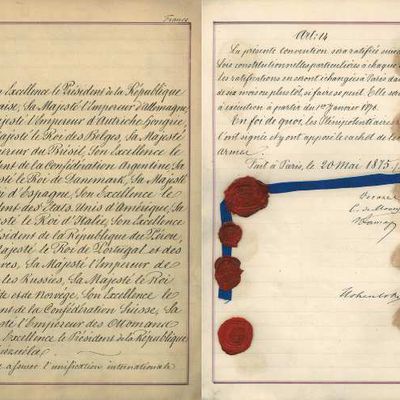 France
Son Excellence le Président de la République
çaise, Sa Majesté l'Empereur d'Allemagne,
ajesté l'Empereur d'Autriche Hongrie,
ajesté le Roi des Belges, Sa Majesté
pereur du Brésil, Son Excellence le
ent de la Confédération Argentine, Sa
té le Roi de Danemark, Sa Majesté
i d'Espagne, Son Excellence le
ent des Etats Unis d'Amérique, Sa
sté le Roi d'Italie, Son Excellence
ésident de la République du Pérou,
ajesté le Roi de Portugal et des
ves, Sa Majesté l'Empereur de
les Russies, Sa Majesté le Roi
de et de Norvège, Son Excellence le
ent de la Confédération Suisse, Sa
sté l'Empereur des Ottomans
Excellence le Président de la République
nézuéla
assurer l'unification internationale
Art: 14
La présente convention sera ratifiée suiv
lois constitutionnelles particulières à chaque
les ratifications en seront échangées à Paris da
de six mois ou plus tôt, si faire se peut. Elle se
à exécution à partir du 1er Janvier 1876.
En foi de quoi, les Plénipotentiaires
l'ont signée et y ont apposé le cachet de le
armes.
Fait à Paris, le 20 Mai 1875
Decazes
Hohenlohe